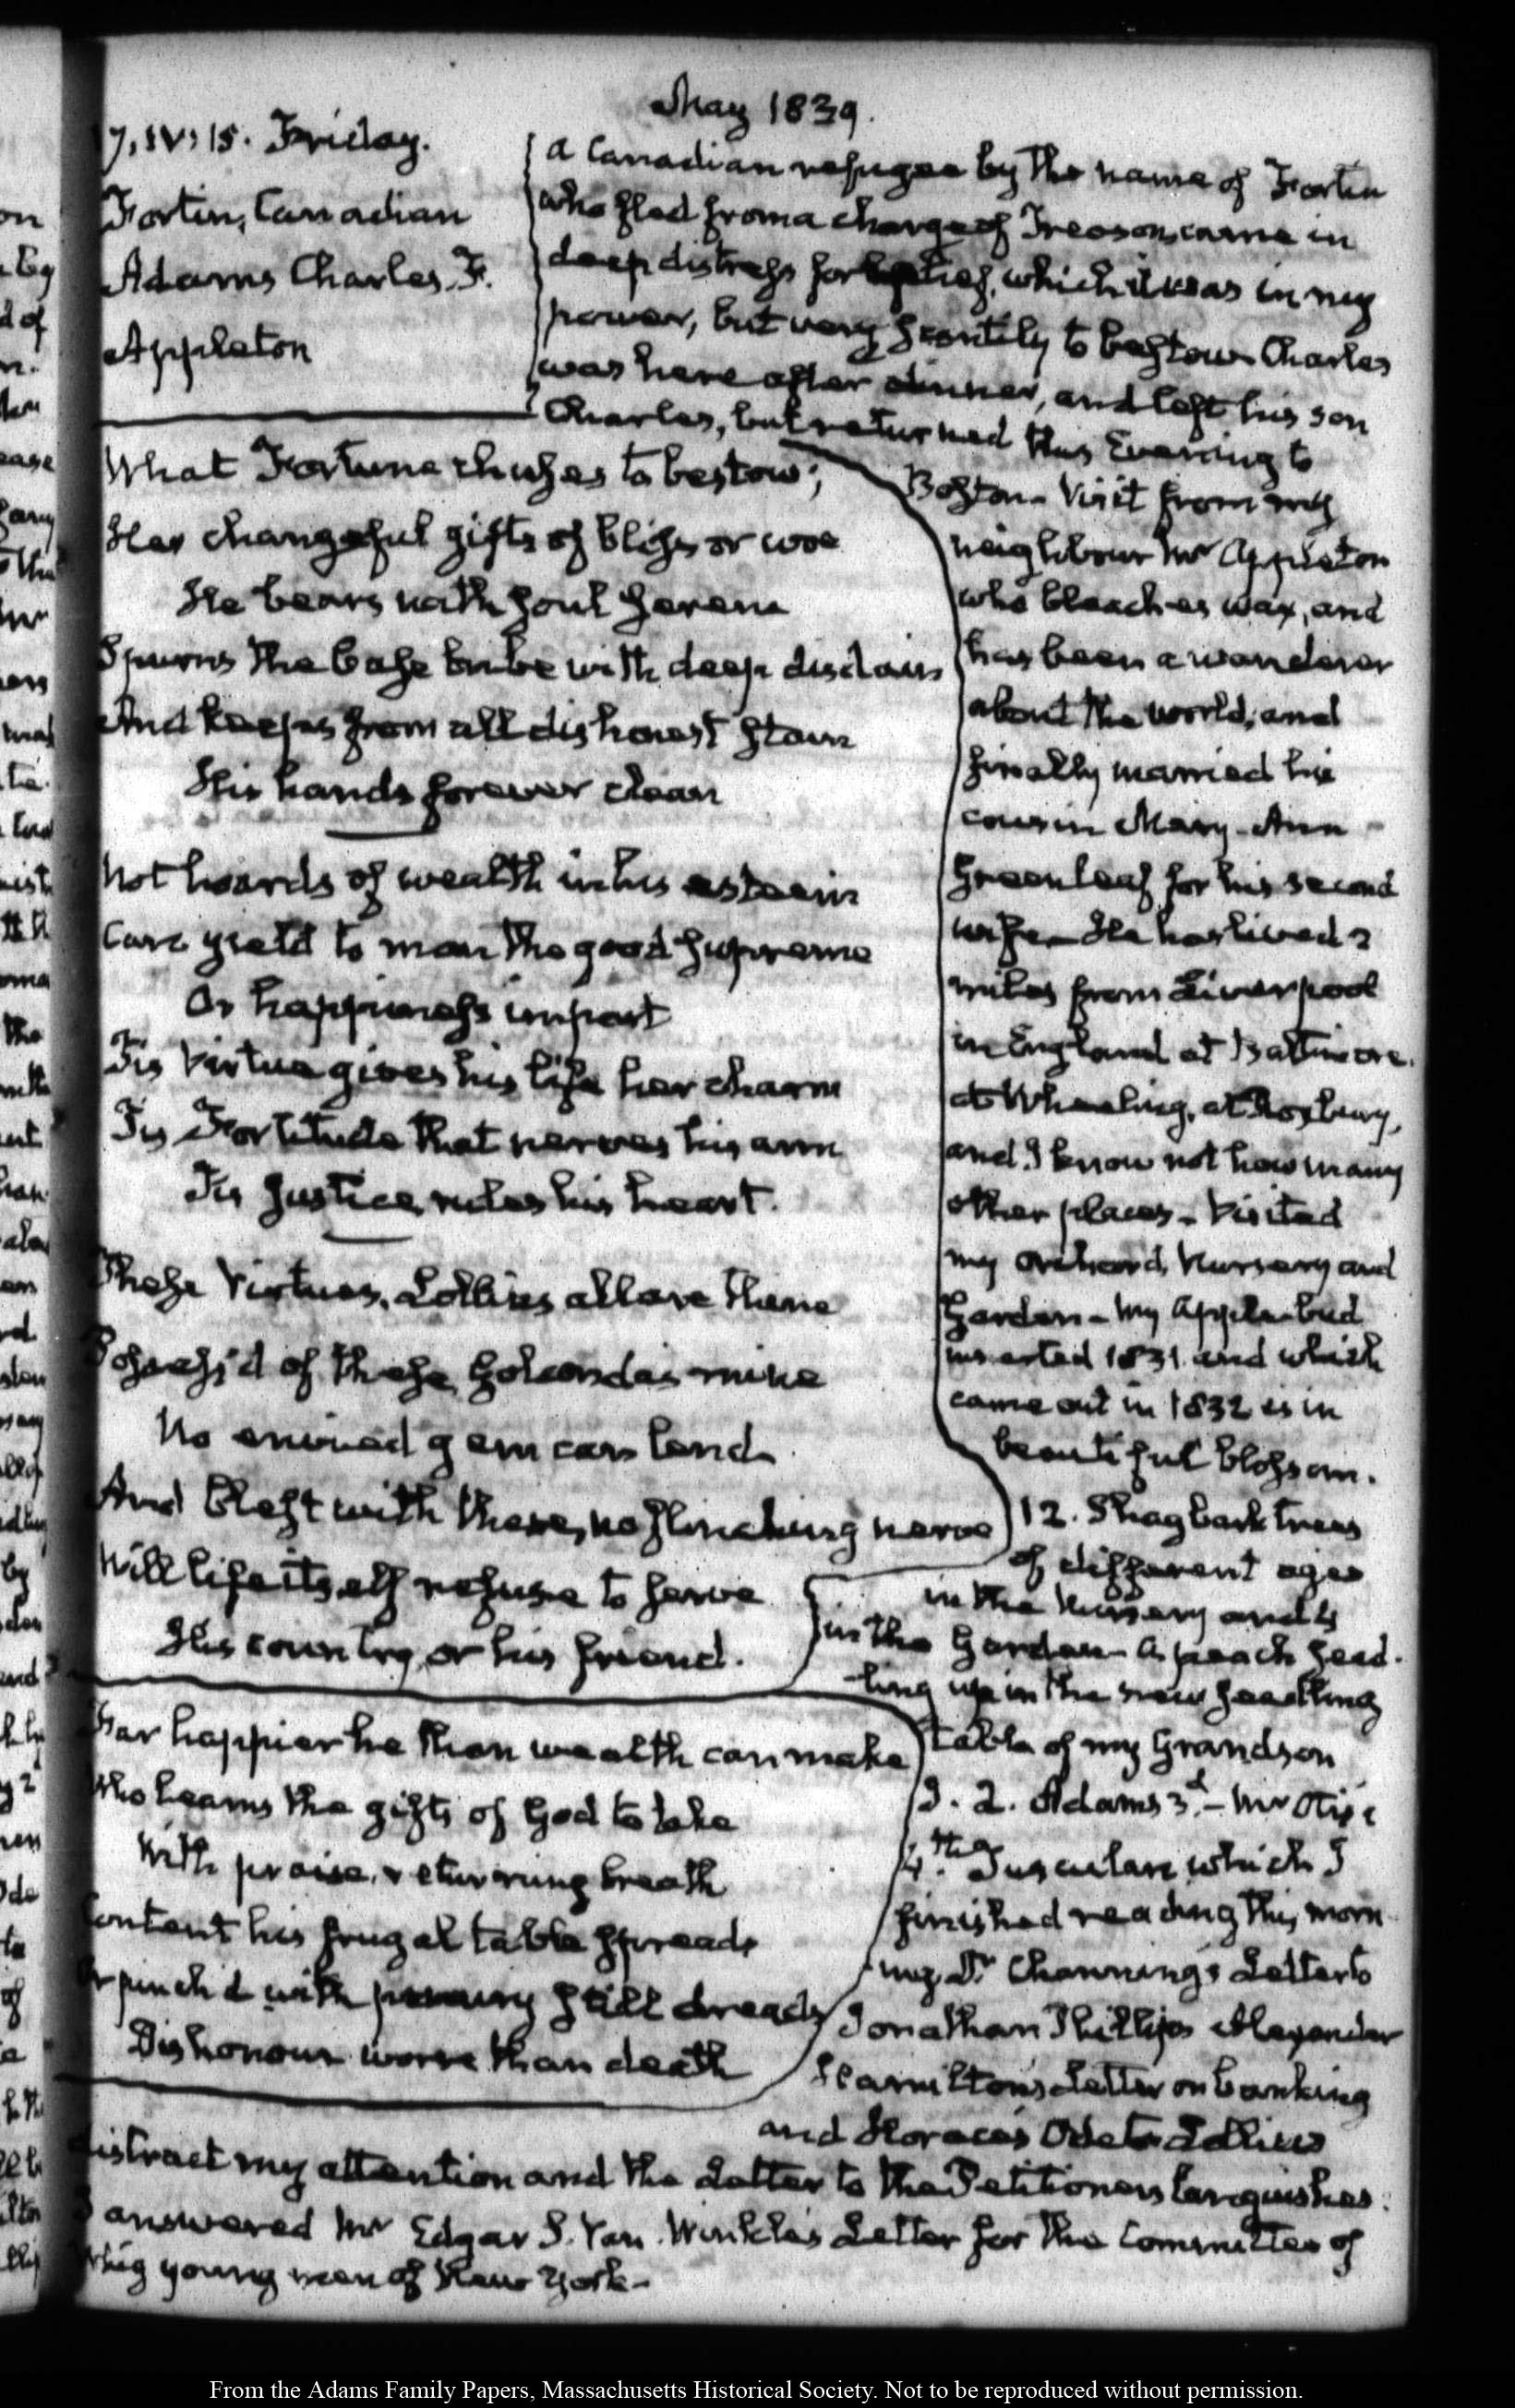 May 1839.
17. IV:15. Friday.
Fortin, Canadian
Adams Charles. F.
Appleton
A Canadian refugee by the name of Fortin
who fled from a charge of Treason, came in
deep distress for relief, which it was in my
power, but very scantily to bestow Charles
was here after dinner, and left his son
Charles, but returned this Evening to
Boston – Visit from my
neighbour Mr Appleton
who bleaches wax, and
has been a wanderer
about the world, and
finally married his
cousin Mary-Ann
Greenleaf for his second
wife – He has lived 2
miles from Liverpool
in England at Baltimore.
at Wheeling, at Roxbury,
and I know not how many
other places – Visited
my orchard, Nursery and
Garden – My Apple-bud
inserted 1831 and which
came out in 1832 is in
beautiful blossom.
12. Shagbark trees
of different ages
in the Nursery and 4
in the Garden – A peach seed-
-ling up in the new seedling
table of my Grandson
J. Q. Adams 3d. – Mr Otis's
4th. Tusculan, which I
finished reading this morn-
ing, Dr Channing's Letter to
Jonathan Phillips Alexander
Hamilton's Letter on banking
and Horace's Ode to Lollius
What Fortune chuses to bestow;
Her changeful gifts of bliss or woe
He bears with soul serene
Spurns the base bribe with deep disdain
And keeps from all dishonest stain
His hands forever clean
Not hoards of wealth in his esteem
Can yield to man the good supreme
Or happiness impart
Tis Virtue gives his life her charm
Tis Fortitude that nerves his arm
Tis Justice, rules his heart.
These Virtues, Lollius all are thine
Possess'd of these, Golconda's mine
No envied gem can lend
And blest with these, no flinching nerve
Will life itself refuse to serve
His country, or his friend.
Far happier he than wealth can make
Who learns the gifts of God to take
With praise, returning breath
Content his frugal table spreads
Or pinch'd with penury still dreads
Dishonour worse than death
distract my attention and the Letter to the Petitioners languishes.
I answered Mr Edgar S. Van Winkle's Letter for the Committee of
Whig young men of New York –